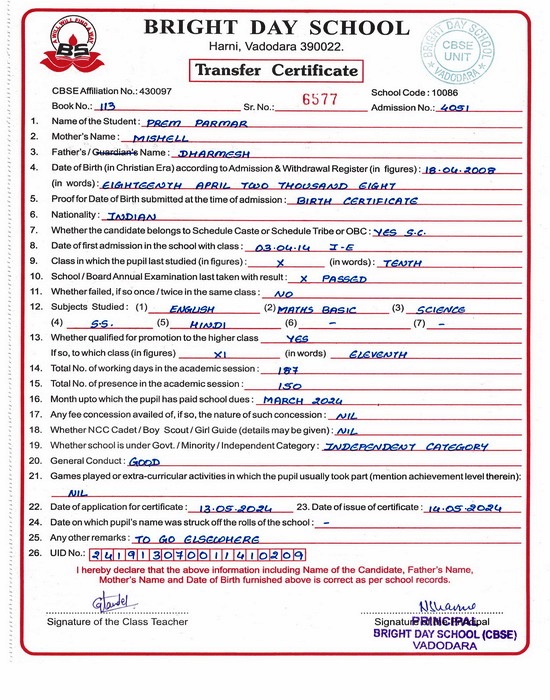 A WILL WILL FIND A WAY
BS
BRIGHT DAY SCHOOL
Harni, Vadodara 390022.
Transfer Certificate
BRIGHT DAY SCHOOL
CBSE
UNIT
VADODARA
CBSE Affiliation No.: 430097 School Code : 10086
Book No.: 113 Sr. No.: 6577 Admission No.: 4051
1. Name of the Student : PREM PARMAR
2. Mother's Name : MISHELL
3. Father's / Guardian's Name : DHARMESH
4. Date of Birth (in Christian Era) according to Admission & Withdrawal Register (in figures) : 18-04-2008
(in words) : EIGHTEENTH APRIL TWO THOUSAND EIGHT
5. Proof for Date of Birth submitted at the time of admission : BIRTH CERTIFICATE
6. Nationality : INDIAN
7. Whether the candidate belongs to Schedule Caste or Schedule Tribe or OBC : YES S.C.
8. Date of first admission in the school with class : 03-04-14 I-E
9. Class in which the pupil last studied (in figures) : X (in words) : TENTH
10. School / Board Annual Examination last taken with result : X PASSED
11. Whether failed, if so once / twice in the same class : NO
12. Subjects Studied : (1) ENGLISH (2) MATHS BASIC (3) SCIENCE
(4) S.S. (5) HINDI (6) - (7) -
13. Whether qualified for promotion to the higher class YES
If so, to which class (in figures) XI (in words) ELEVENTH
14. Total No. of working days in the academic session : 187
15. Total No. of presence in the academic session : 150
16. Month upto which the pupil has paid school dues : MARCH 2024
17. Any fee concession availed of, if so, the nature of such concession : NIL
18. Whether NCC Cadet / Boy Scout / Girl Guide (details may be given) : NIL
19. Whether school is under Govt. / Minority / Independent Category : INDEPENDENT CATEGORY
20. General Conduct : GOOD
21. Games played or extra-curricular activities in which the pupil usually took part (mention achievement level therein):
NIL
22. Date of application for certificate : 13-05-2024 23. Date of issue of certificate : 14-05-2024
24. Date on which pupil's name was struck off the rolls of the school : -
25. Any other remarks : TO GO ELSEWHERE
26. UID No.: 241913070011410209
I hereby declare that the above information including Name of the Candidate, Father's Name,
Mother's Name and Date of Birth furnished above is correct as per school records.
Signature of the Class Teacher Signature of the Principal
PRINCIPAL
BRIGHT DAY SCHOOL (CBSE)
VADODARA